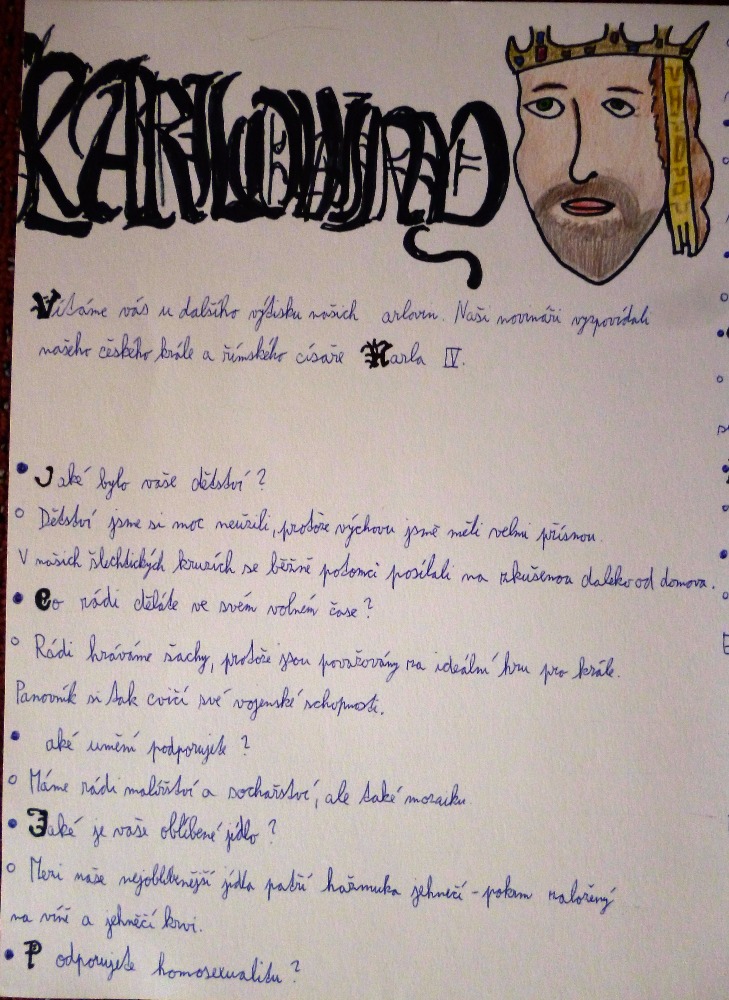 KARLOVINY
Vítáme vás u dalšího výtisku našich arlovin. Naši novináři vyzpovídali
našeho českého krále a římského císaře Karla IV.
• Jaké bylo vaše dětství?
○ Dětství jsme si moc neužili, protože výchovu jsme měli velmi přísnou.
V našich šlechtických kruzích se běžně potomci posílali na zkušenou daleko od domova.
• Co rádi děláte ve svém volném čase?
○ Rádi hráváme šachy, protože jsou považovány za ideální hru pro krále.
Panovník si tak cvičí své vojenské schopnosti.
• aké umění podporujete?
○ Máme rádi malířství a sochařství, ale také mozaiku.
• Jaké je vaše oblíbené jídlo?
○ Mezi naše nejoblíbenější jídla patří kašmuka jehnečí - pokrm naložený
na víně a jehněčí krvi.
• Podporujete homosexualitu?